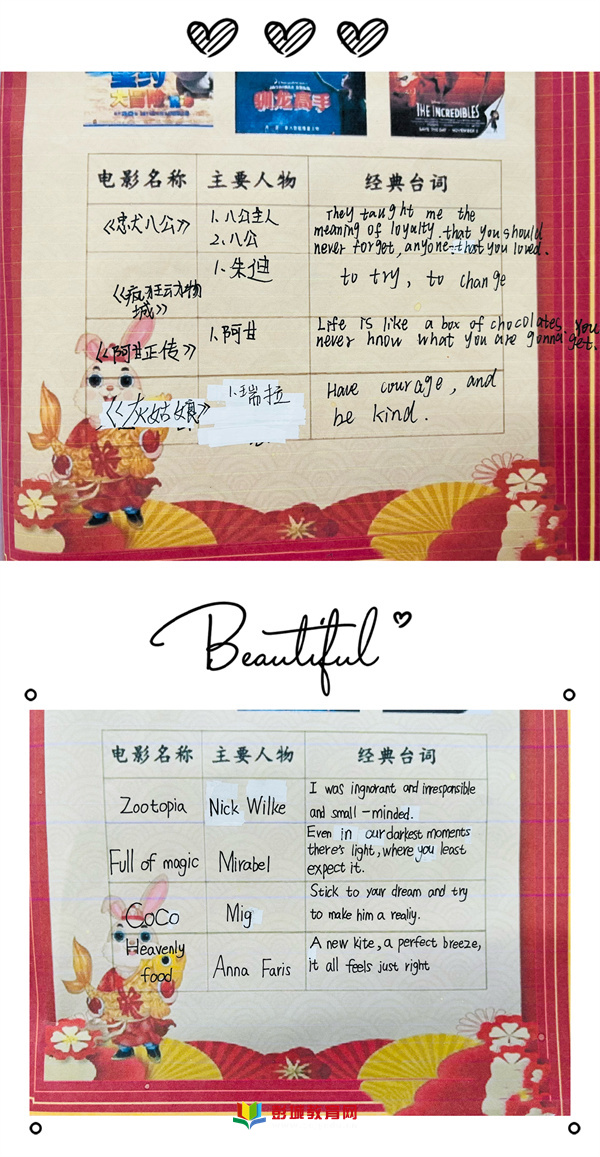 大冒险
驯龙高手
THE INCREDIBLES
SAVE THE DAY - NOVEMBER 5
电影名称 主要人物 经典台词
《忠犬八公》
1、八公主人
2、八公
They taught me the
meaning of loyalty. that you should
never forget, anyone that you loved.
《疯狂动物
城》
1、朱迪
to try, to change
《阿甘正传》
1、阿甘
Life is like a box of chocolates. You
never know what you are gonna get.
《灰姑娘》
1、瑞拉
Have courage, and
be kind.
Beautiful
电影名称 主要人物 经典台词
Zootopia
Nick Wilke
I was ingnorant and irresponsible
and small-minded.
Full of magic
Mirabel
Even in our darkest moments
there's light, where you least
expect it.
CoCo
Mig
Stick to your dream and try
to make him a realiy.
Heavenly
food
Anna Faris
A new kite, a perfect breeze,
it all feels just right
彭城教育网